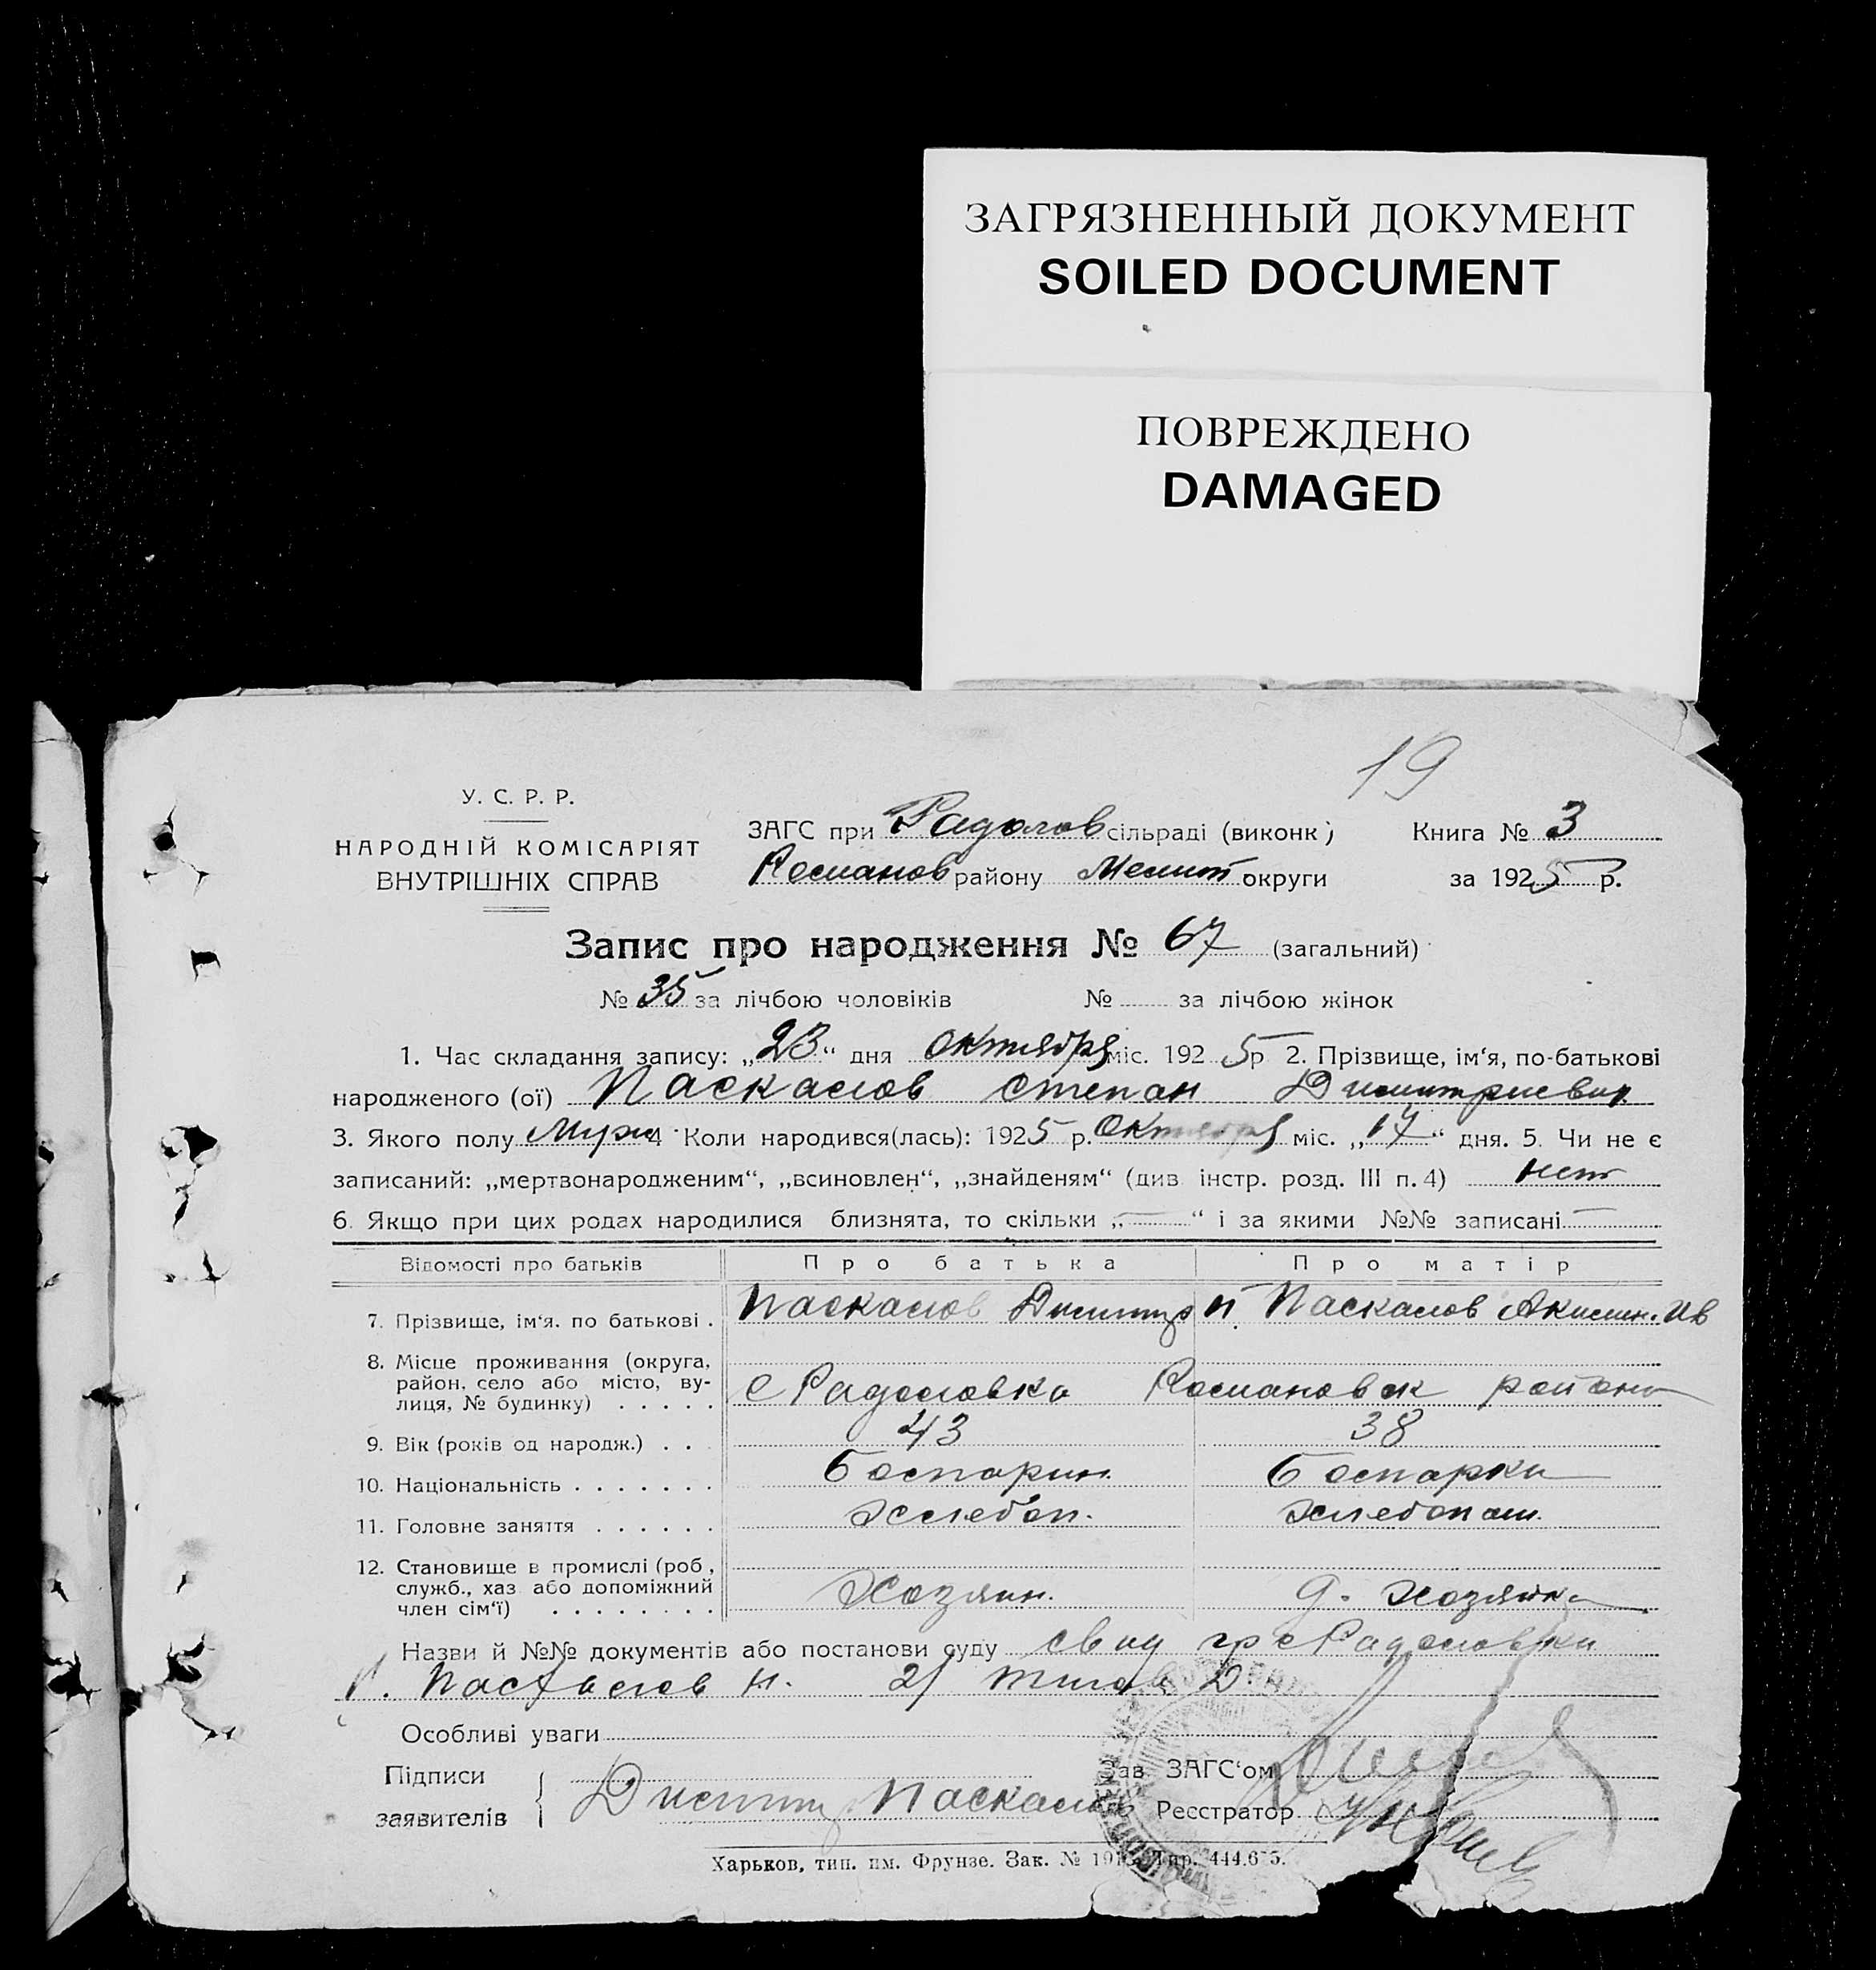 ЗАГРЯЗНЕННЫЙ ДОКУМЕНТ
SOILED DOCUMENT
ПОВРЕЖДЕНО
DAMAGED
19
У. С. Р. Р.
НАРОДНІЙ КОМІСАРІЯТ
ВНУТРІШНІХ СПРАВ
ЗАГС при Радолов сільраді (виконк) Книга № 3
Романов району Мелит округи за 1925 р.
Запис про народження № 67 (загальний)
№ 35 за лічбою чоловіків № за лічбою жінок
1. Час складання запису: „23“ дня октября міс. 1925 р 2. Прізвище, ім‘я, по-батькові
народженого (ої) Паскалов Степан Димитриевич
3. Якого полу Муж 4 Коли народився(лась): 1925 р. Октября міс. „17“ дня. 5. Чи не є
записаний: „мертвонародженим“, „всиновлен“, „знайденям“ (див. інстр. розд. III п. 4) нет
6. Якщо при цих родах народилися близнята, то скільки „—“ і за якими №№ записані —
Відомості про батьків Про батька Про матір
7. Прізвище, ім‘я. по батькові . Паскалов Димитр П. Паскалов Акилин. Ив
8. Місце проживання (округа,
район, село або місто, ву-
лиця, № будинку) . . . . . с Радоловка Романовск района
9. Вік (років од народж.) . . 43 38
10. Національність . . . . . . . болгарин. болгарка
11. Головне заняття . . . . . . хлебоп. хлебопаш.
12. Становище в промислі (роб,
служб., хаз або допоміжний
член сім‘ї) . . . . . . . . Хозяин. д. хозяйка
Назви й №№ документів або постанови суду свид гр с Радоловки
Н. 2/ Д.
Особливі уваги
Підписи
заявителів
Димитр Паскалов
Зав. ЗАГС‘ом
Реєстратор
Харьков, тип. им. Фрунзе. Зак. №